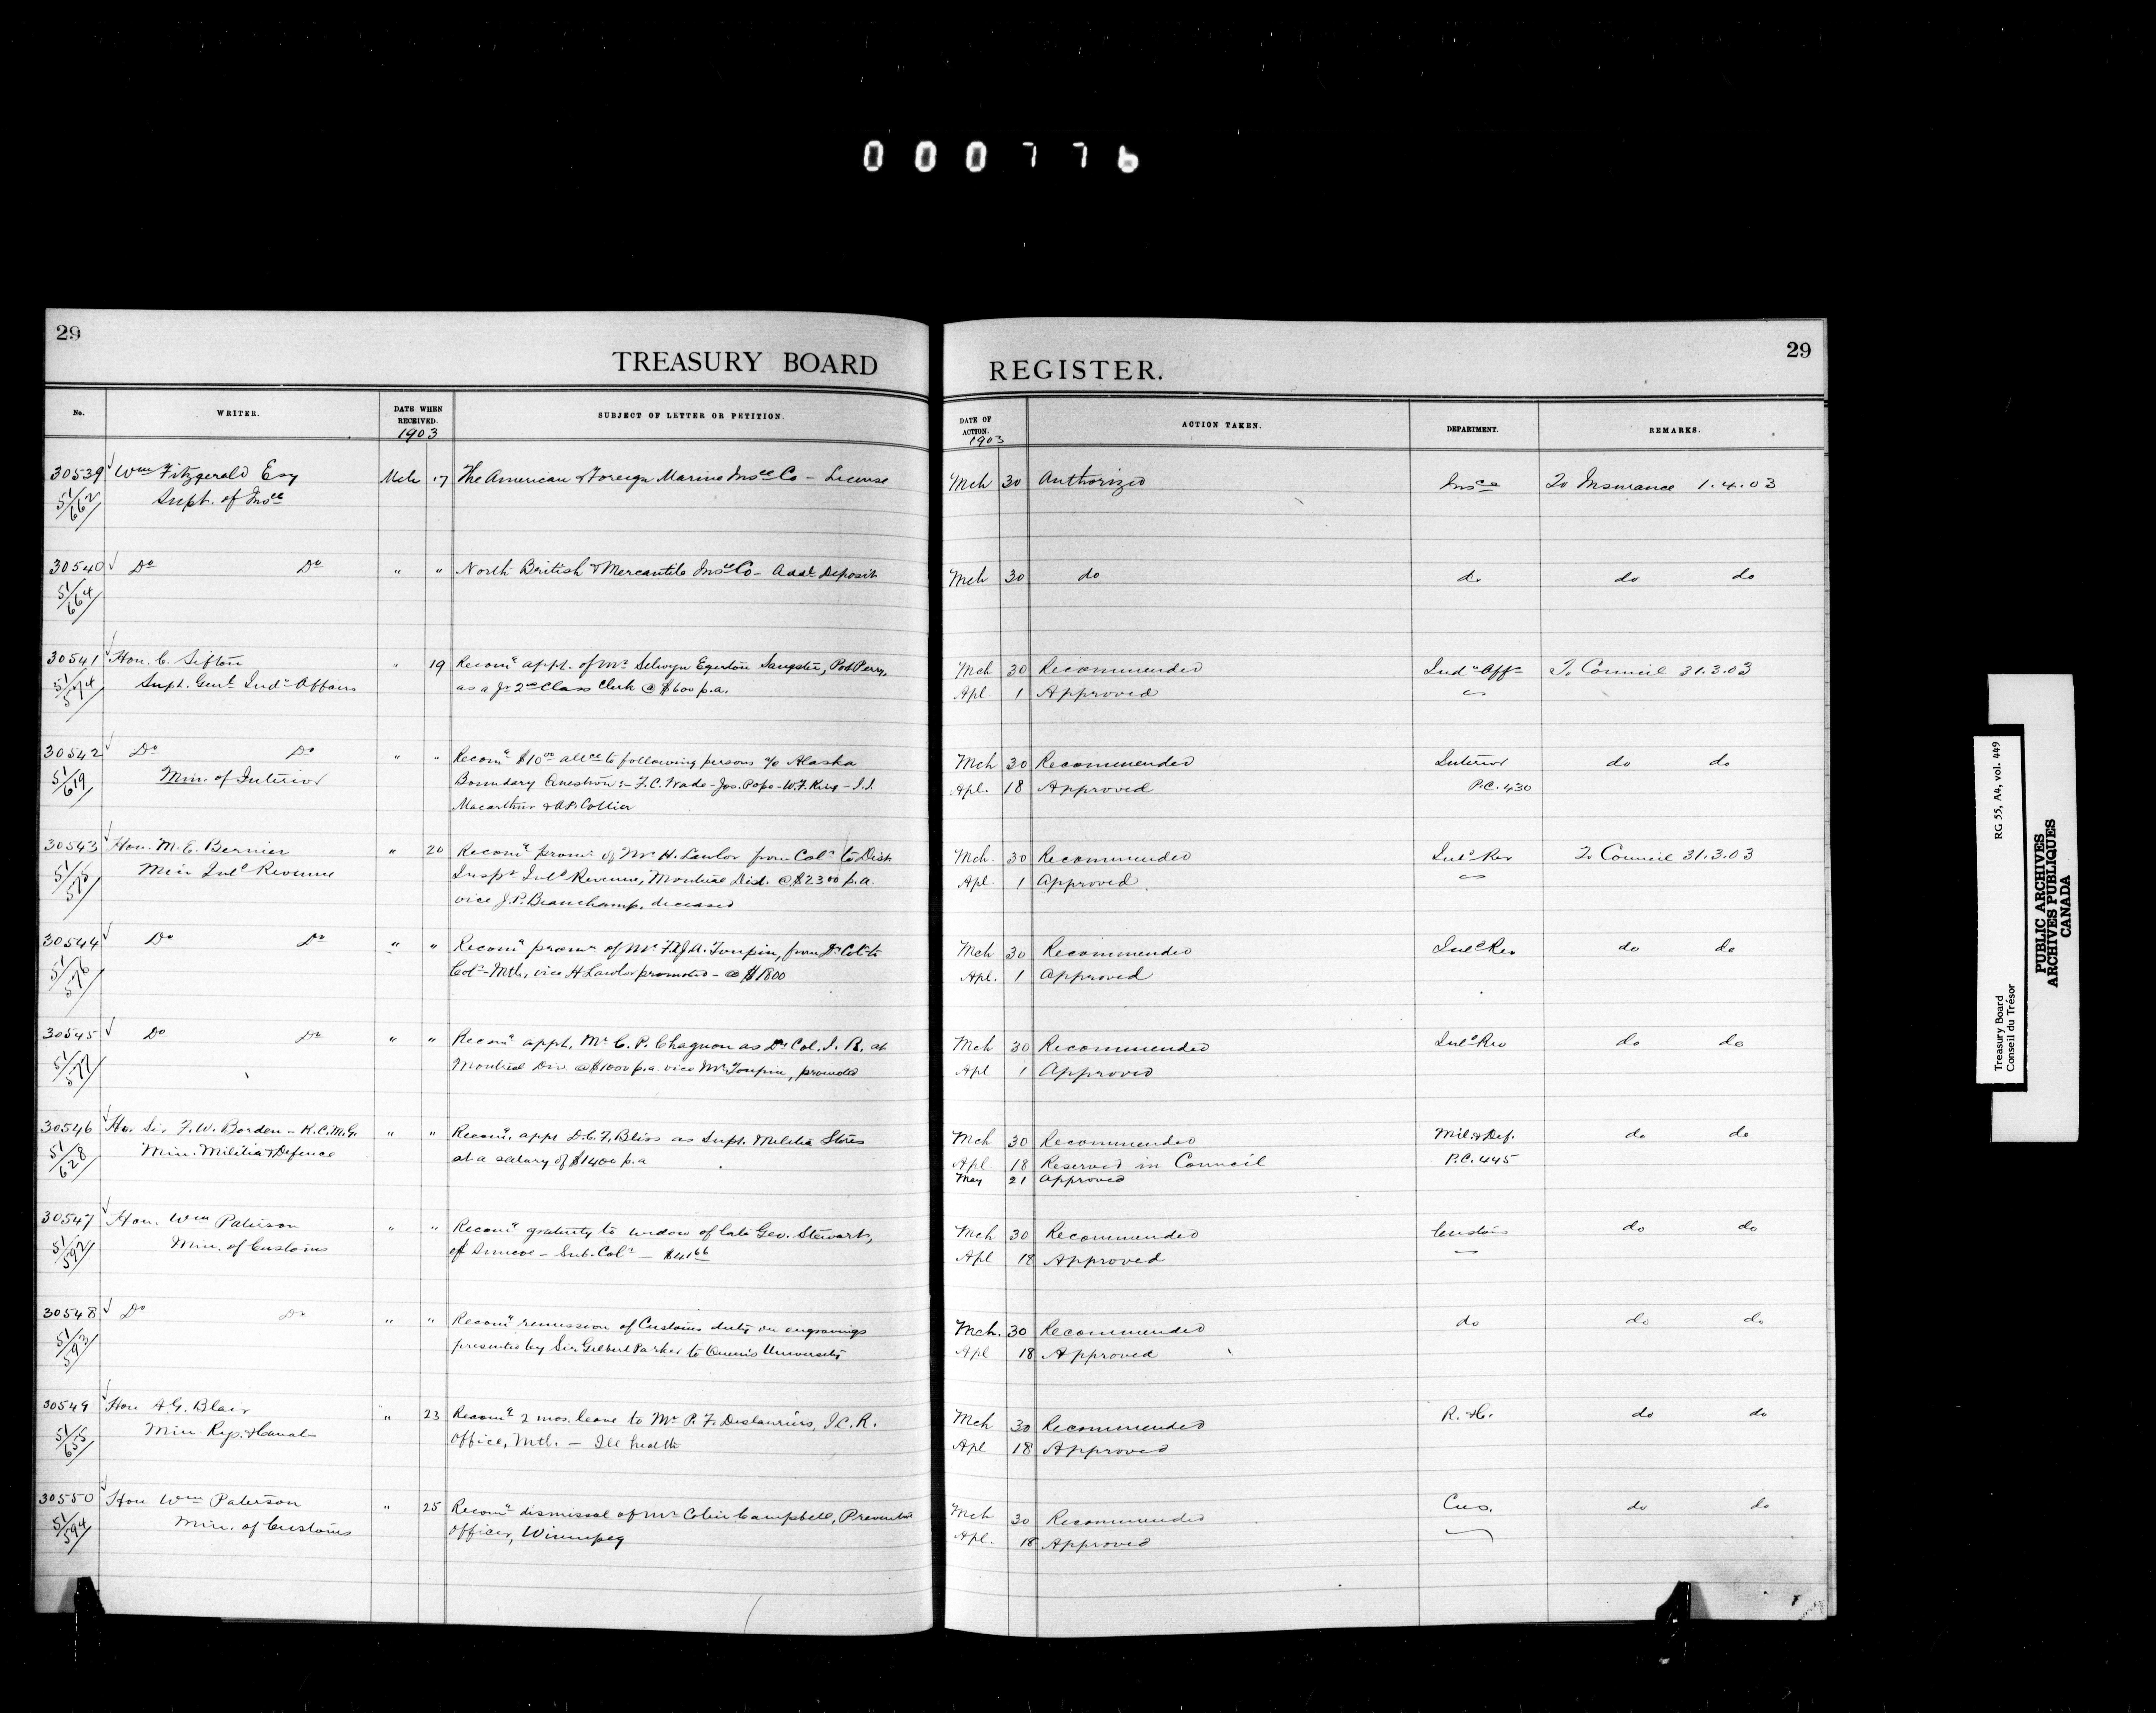 000776
29
TREASURY BOARD
No.
WRITER.
DATE WHEN RECEIVED.
1903
SUBJECT OF LETTER OR PETITION.
30539 Wm Fitzgerald Esq Mch 17 The American & Foreign Marine Insce Co - License
51/662 Supt. of Insce
30540 Do Do " " North British & Mercantile Insce Co - Addl Deposit
51/664
30541 Hon. C. Sifton " 19 Recomg appt. of Mr Selwyn Egerton Sangster, Port Perry,
51/574 Supt. Genl Indn Affairs as a Jr 2nd Class Clerk @ $600 p.a.
30542 Do Do " " Recomg $10.00 allce to following persons a/c Alaska
51/619 Min. of Interior Boundary Question :- F.C. Wade - Jos. Pope - W.F. King - J.J.
Macarthur & A.P. Collier
30543 Hon. M.E. Bernier " 20 Recomg promn of Mr H. Lawlor from Colr to Dist
51/575 Min Inld Revenue Inspr Inld Revenue, Montreal Dist. @ $2300 p.a.
vice J.P. Beauchamp, deceased
30544 Do Do " " Recomg promn of Mr F.X.J.A. Toupin, from Dy Colr to
51/576 Colr - Mtl, vice H Lawlor promoted - @ $1800
30545 Do Do " " Recomg appt. Mr C. P. Chagnon as Dy Col. I. R. at
51/577 Montreal Div. @ $1000 p.a. vice Mr Toupin, promoted
30546 Hon Sir F.W. Borden - K.C.M.G. " " Recomg appt D.C.F. Bliss as Supt. Militia Stores
51/628 Min. Militia & Defence at a salary of $1400 p.a
30547 Hon. Wm Paterson " " Recomg gratuity to widow of late Geo. Stewart,
51/592 Min. of Customs of Simcoe - Sub. Colr - $41.66
30548 Do Do " " Recomg remission of Customs duty on engravings
51/593 presented by Sir Gilbert Parker to Queen's University
30549 Hon A.G. Blair " 23 Recomg 2 mos. leave to Mr P. F. Deslauriers, I.C.R.
51/655 Min. Rys. & Canal Office, Mtl. - Ill health
30550 Hon Wm Paterson " 25 Recomg dismissal of Mr Colin Campbell, Preventive
51/594 Min. of Customs Officer, Winnipeg
REGISTER.
29
DATE OF ACTION.
1903
ACTION TAKEN.
DEPARTMENT.
REMARKS.
Mch 30 Authorized Insce To Insurance 1.4.03
Mch 30 do do do do
Mch 30 Recommended Indn Affs To Council 31.3.03
Apl 1 Approved
Mch 30 Recommended Interior do do
Apl. 18 Approved P.C. 430
Mch. 30 Recommended Inld Rev To Council 31.3.03
Apl. 1 Approved
Mch 30 Recommended Inld Rev do do
Apl. 1 Approved
Mch 30 Recommended Inld Rev do do
Apl 1 Approved
Mch 30 Recommended Mil. & Def. do do
Apl. 18 Reserved in Council P.C. 445
May 21 Approved
Mch 30 Recommended Customs do do
Apl 18 Approved
Mch. 30 Recommended do do do
Apl 18 Approved
Mch 30 Recommended R. & C. do do
Apl 18 Approved
Mch 30 Recommended Cus. do do
Apl. 18 Approved
Treasury Board RG 55, A4, vol. 449
Conseil du Trésor
PUBLIC ARCHIVES
ARCHIVES PUBLIQUES
CANADA